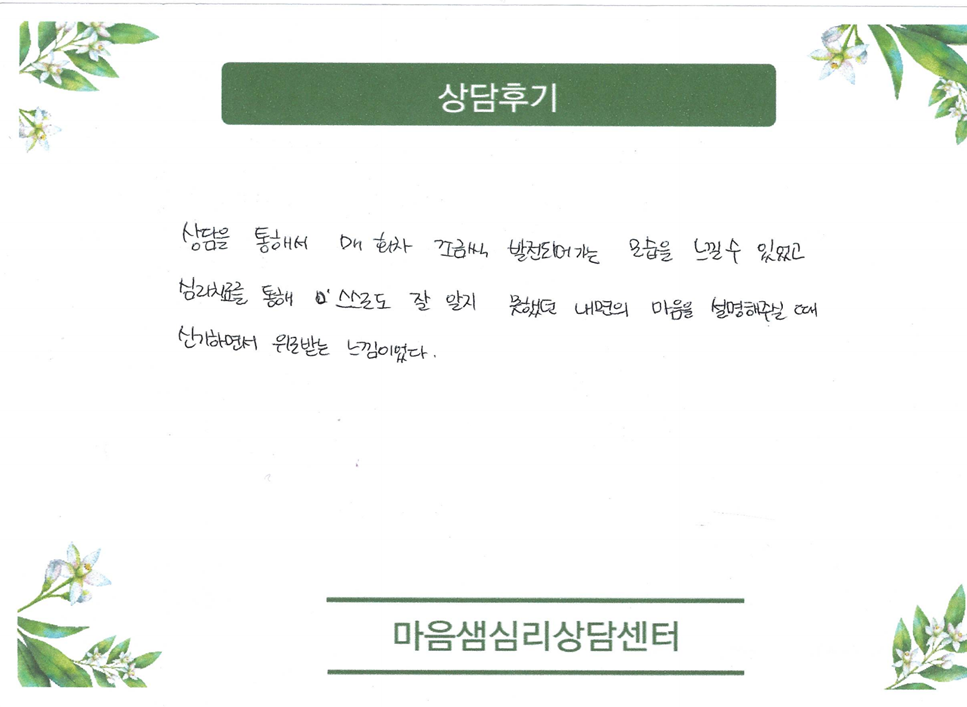 상담후기
상담을 통해서 매 회차 조금씩 발전되어가는 모습을 느낄수 있었고
심리치료를 통해 스스로도 잘 알지 못했던 내면의 마음을 설명해주실 때
신기하면서 위로받는 느낌이었다.
마음샘심리상담센터